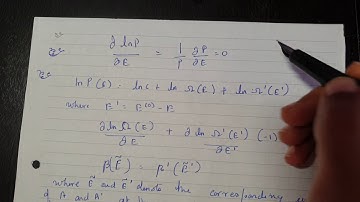 ∂ lnP / ∂E = 1/P ∂P/∂E = 0
ln P(E) = lnC + ln Ω(E) + ln Ω'(E')
where E' = E⁽⁰⁾ - E
∂ ln Ω(E) / ∂E + ∂ ln Ω'(E') / ∂E' (-1)
β(Ẽ) = β'(Ẽ')
where Ẽ and Ẽ' denote the corresponding
A and A'